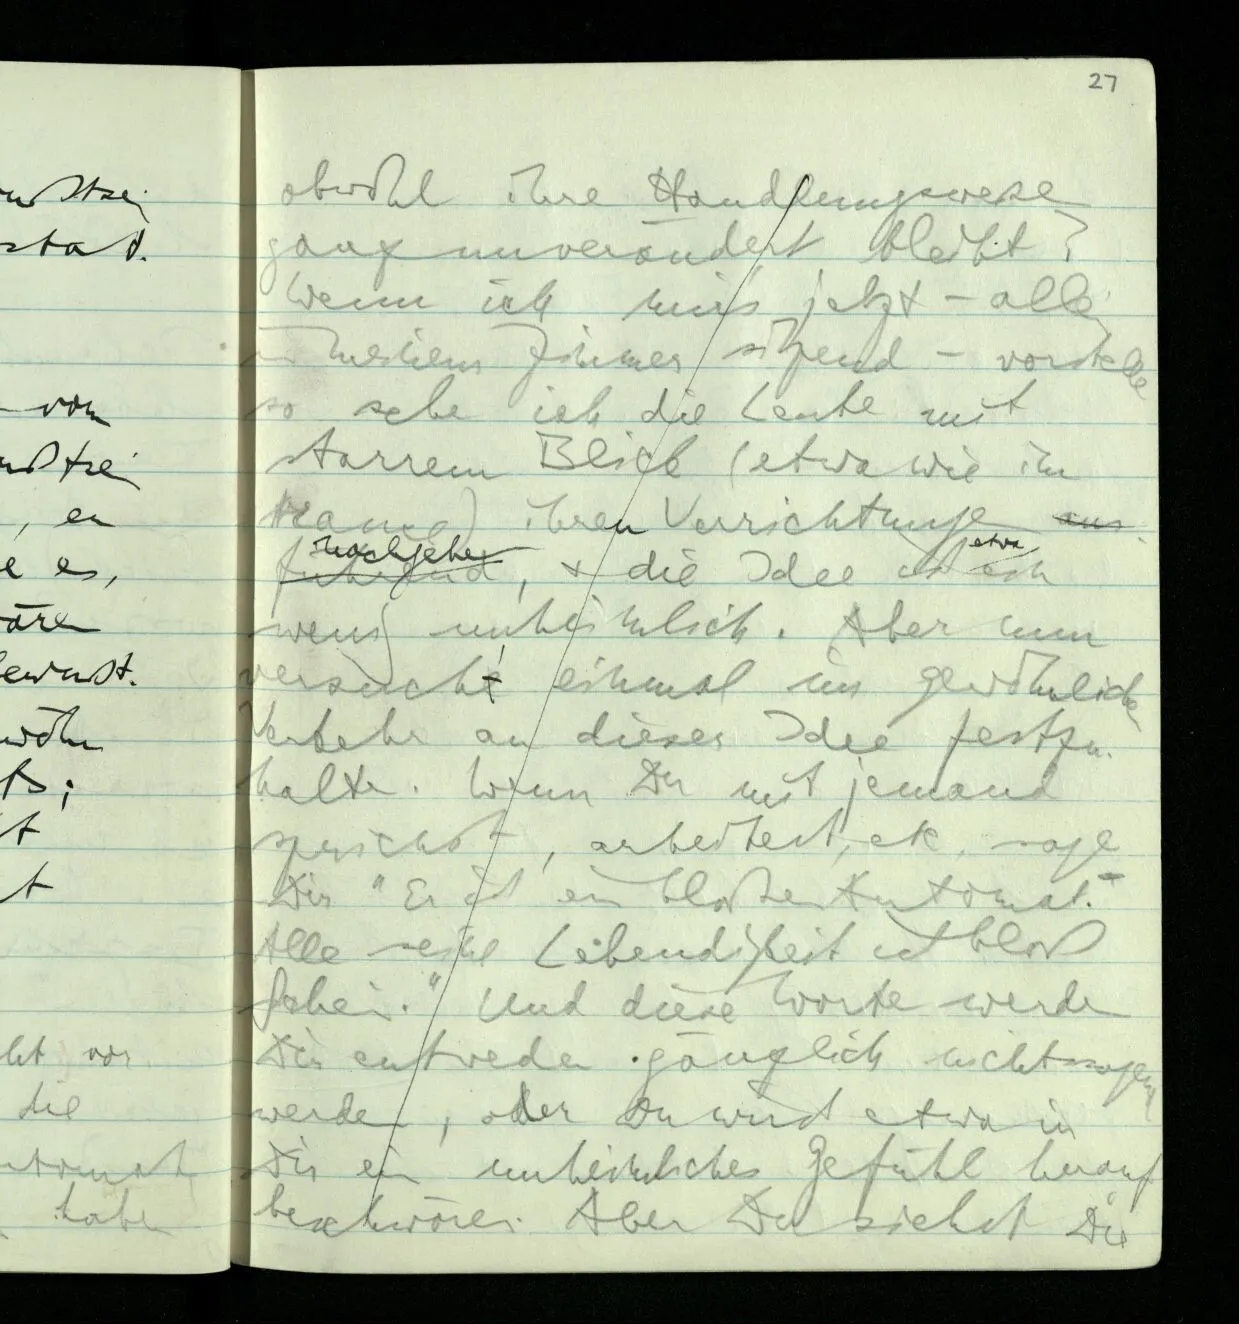 27
obwohl ihre Handlungsweise
ganz unverändert bleibt?
Wenn ich mir's jetzt – allein
in meinem Zimmer sitzend – vorstelle
so sehe ich die Leute mit
starrem Blick (etwa wie im
Trance) ihren Verrichtungen aus
nachgehen etwa
führend, + die Idee ist ein
wenig unheimlich. Aber nun
versucht einmal im gewöhnlichen
Verkehr an dieser Idee festzu-
halten. Wenn Du mit jemand
sprichst, arbeitest, etc, sage
Dir "Er ist ein bloßer Automat.
Alle seine Lebendigkeit ist bloß
Schein." Und diese Worte werden
Dir entweder gänzlich nichtssagend
werden, oder Du wirst etwa in
Dir ein unheimliches Gefühl herauf
beschwören. Aber Du siehst Die
von
, en
e es,
wären
bewußt.
ts;
t
t
vor
die
Automat
haben